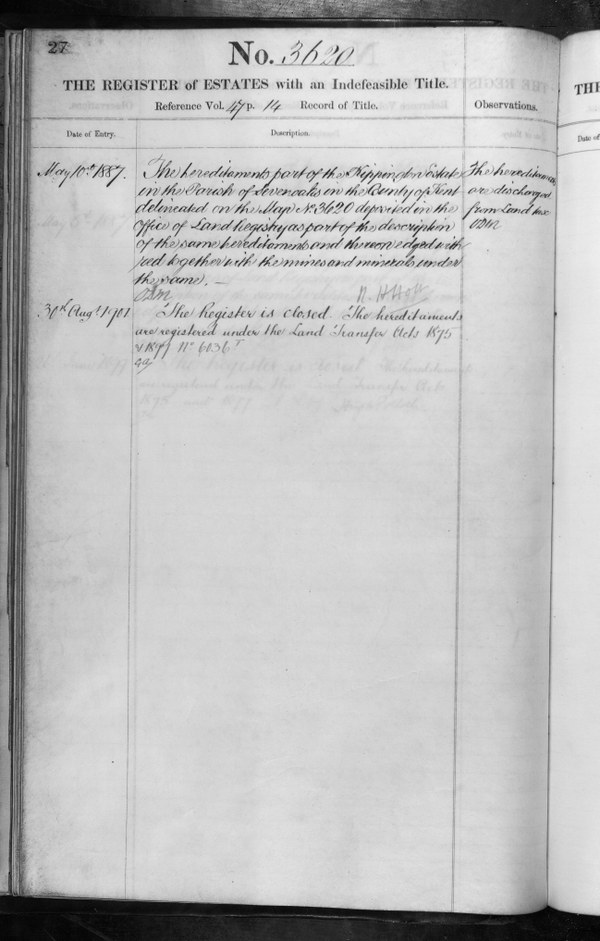 27
No. 3620
THE REGISTER of ESTATES with an Indefeasible Title.
Reference Vol. 47 p. 14 Record of Title.
Observations.
Date of Entry.
Description.
May 10th 1887.
The hereditaments part of the Kippington Estate
in the Parish of Sevenoaks in the County of Kent
delineated on the Map No. 3620 deposited in the
Office of Land Registry as part of the description
of the same hereditaments and thereon edged with
red together with the mines and minerals under
the same. —
The hereditaments
are discharged
from Land tax
30th Augt 1901
The Register is closed. The hereditaments
are registered under the Land Transfer Acts 1875
& 1897 No 6036
THE
Date of